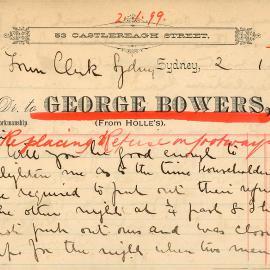 2.1.99.
53 CASTLEREAGH STREET,
Town Clerk Sydney
Sydney, 2 1
Dr. to GEORGE BOWERS,
Workmanship.
(From HOLLE'S).
Replacing Refuse on footways
Will you be good enough to
lighten me as to the time Householders
are required to put out their refuse
the other night at ¼ past 8 I
not put out ours and was closing
up for the night when two men